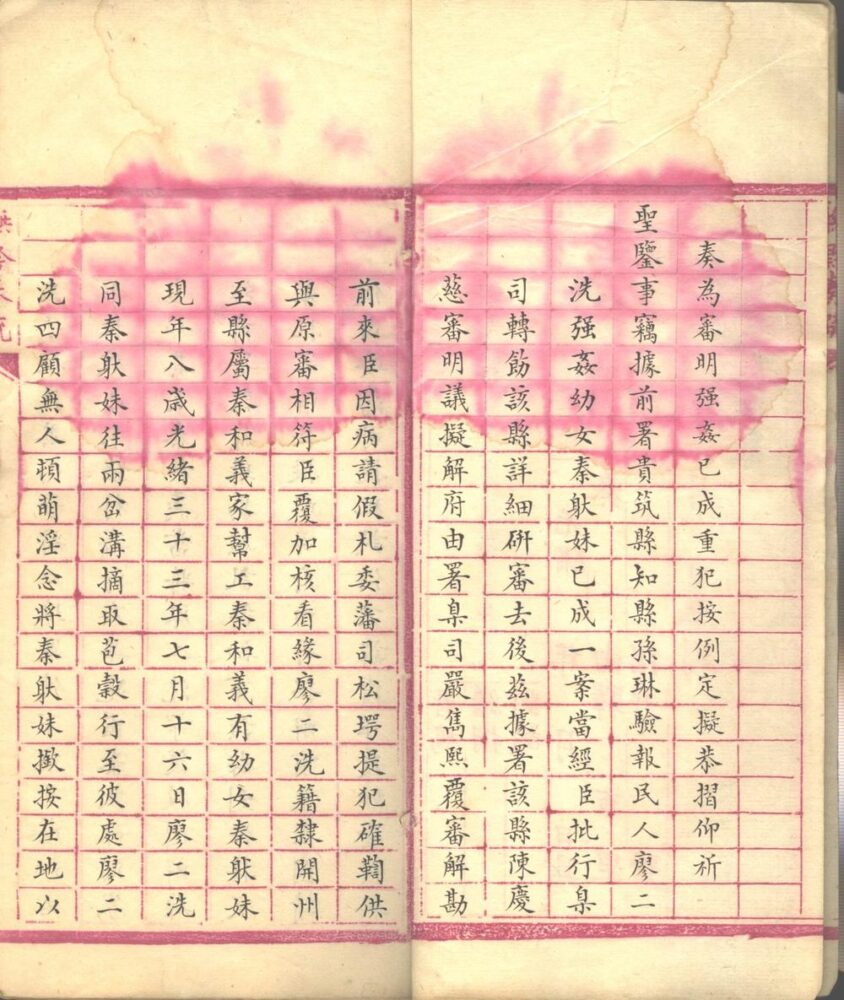 奏為審明强姦已成重犯按例定擬恭摺仰祈
聖鑒事竊據前署貴筑縣知縣孫琳驗報民人廖二
洗强姦幼女秦躭妹已成一案當經臣批行臬
司轉飭該縣詳細研審去後茲據署該縣陳慶
慈審明議擬解府由署臬司嚴雋熙覆審解勘
前來臣因病請假札委藩司松堮提犯確鞫供
與原審相符臣覆加核看緣廖二洗籍隸開州
至縣屬秦和義家幫工秦和義有幼女秦躭妹
現年八歲光緒三十三年七月十六日廖二洗
同秦躭妹往兩岔溝摘取苞穀行至彼處廖二
洗四顧無人頓萌淫念將秦躭妹撳按在地以